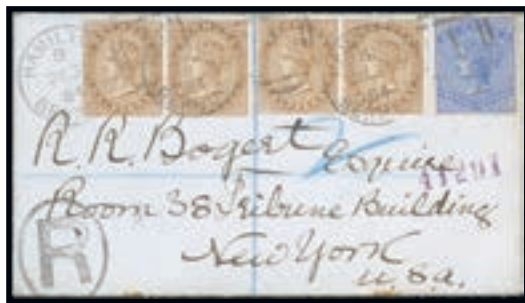 HAMILT
R. R. Bogert Esquire
41291
Room 38 Tribune Building
New York
U.S.a.
R